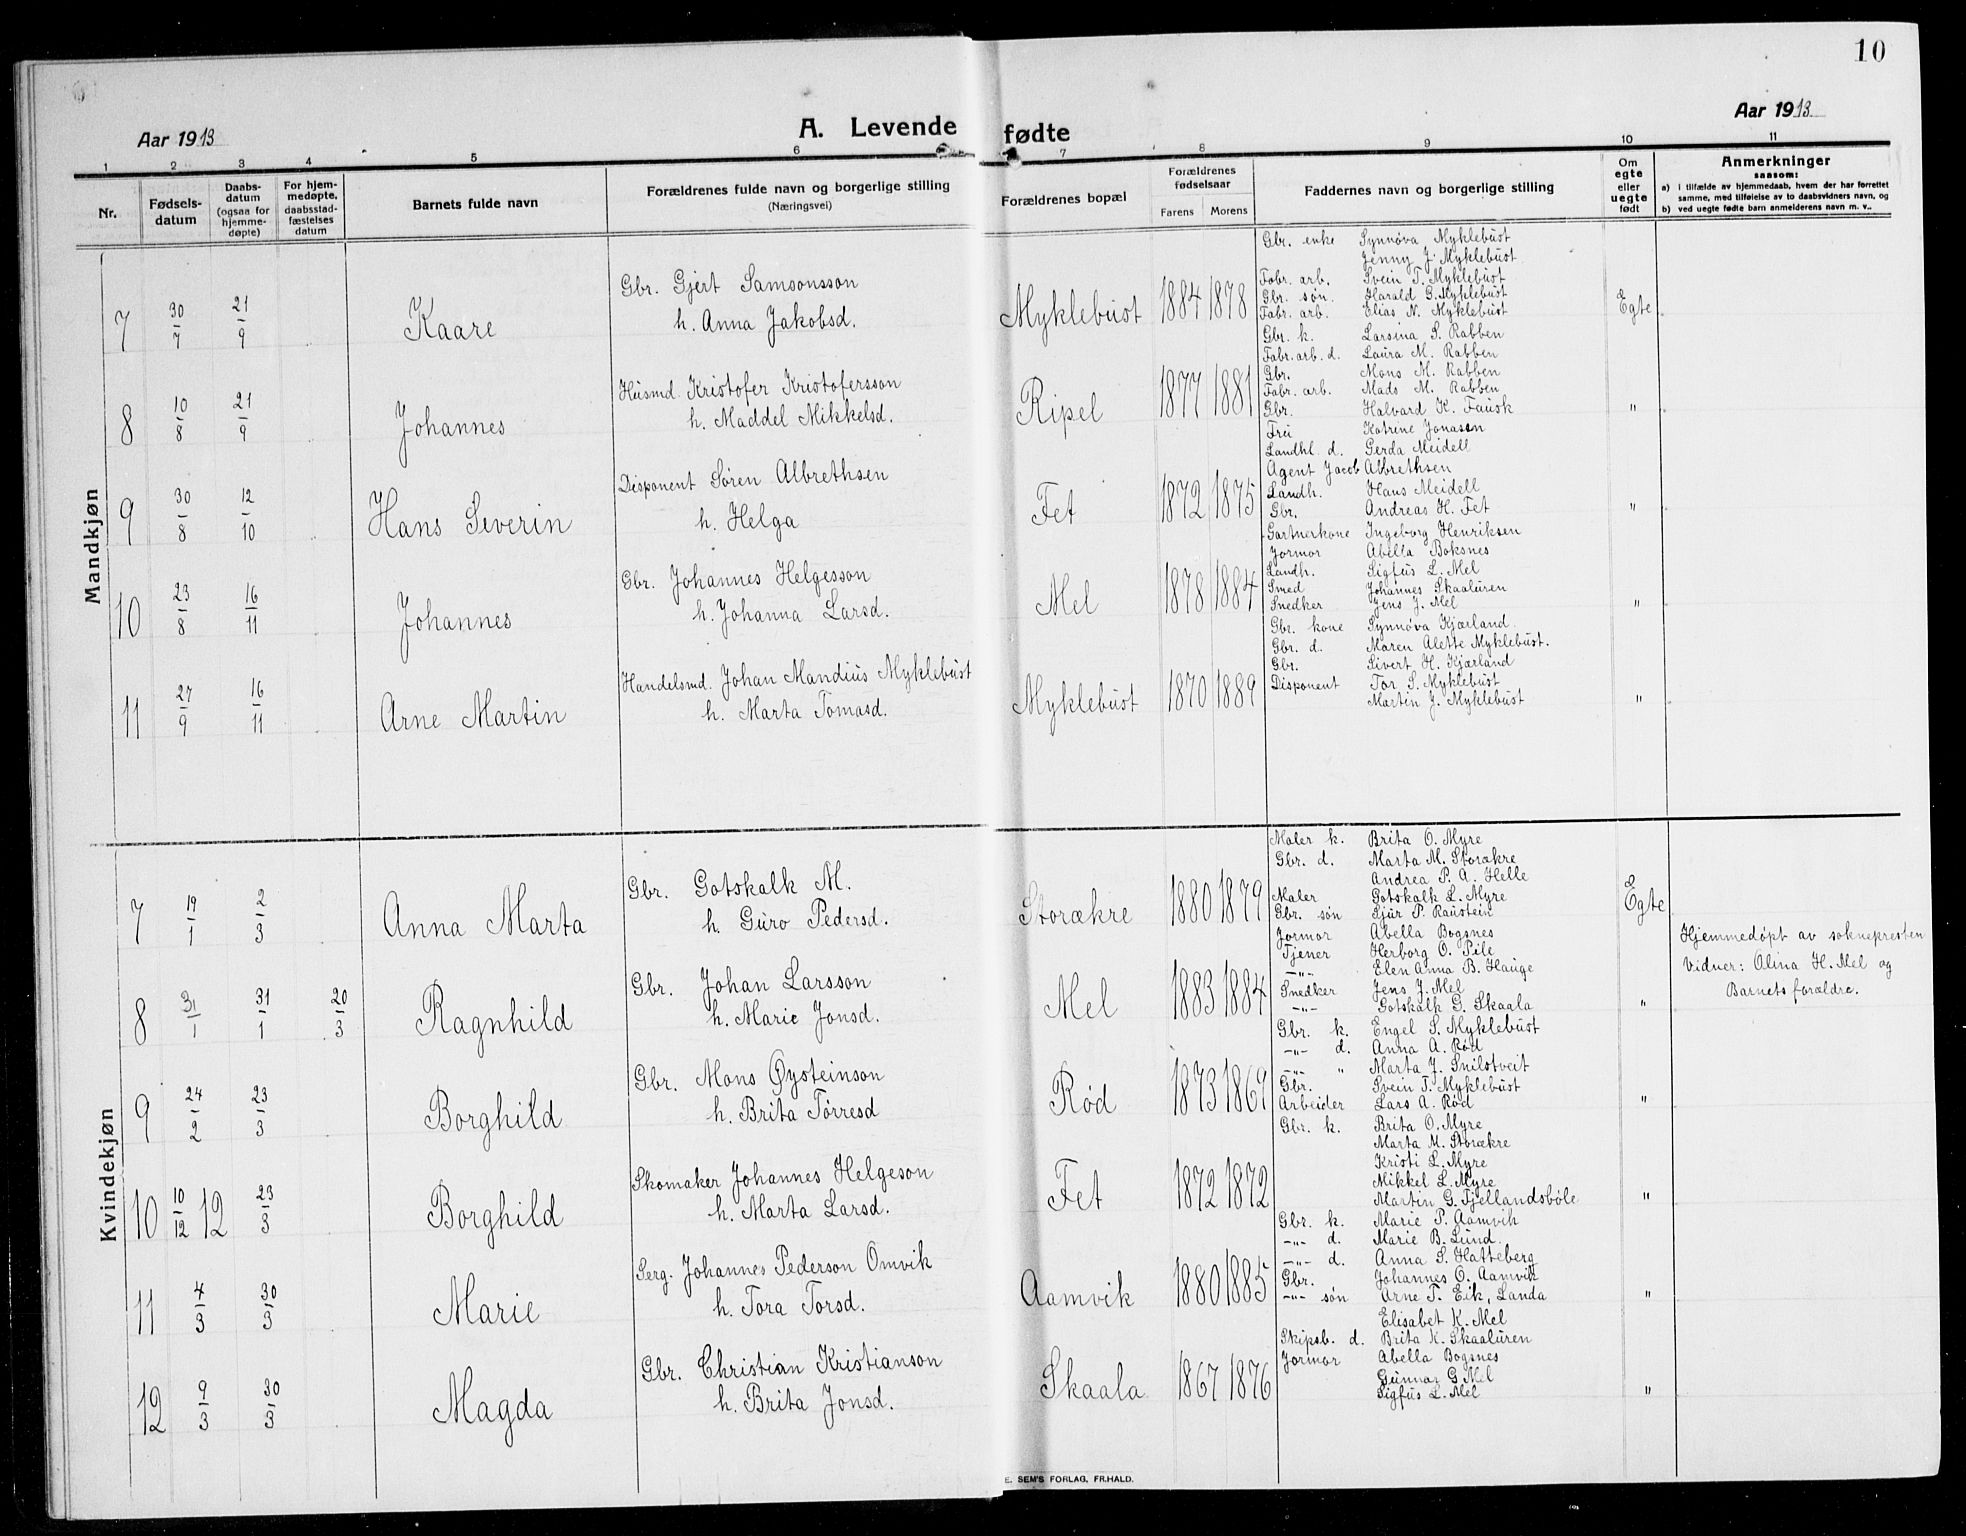 10
Aar 1913
A. Levende fødte
Aar 1913
1 2 3 4 5 6 7 8 9 10 11
Nr.
Fødsels-
datum
Daabs-
datum
(ogsaa for
hjemme-
døpte)
For hjem-
medøpte,
daabsstad-
fæstelses
datum
Barnets fulde navn
Forældrenes fulde navn og borgerlige stilling
(Næringsvei)
Forældrenes bopæl
Forældrenes
fødselsaar
Farens Morens
Faddernes navn og borgerlige stilling
Om
egte
eller
uegte
født
Anmerkninger
saasom:
a) i tilfælde av hjemmedaab, hvem der har forrettet
samme, med tilføielse av to daabsvidners navn, og
b) ved uegte fødte barn anmelderens navn m. v..
Mandkjøn
7 30/7 21/9 Kaare
Gbr. Gjert Samsonsson
h. Anna Jakobsd.
Myklebust 1884 1878
Gbr. enke Synnøva Myklebust
Jenny J. Myklebust
Fabr. arb. Svein T. Myklebust
Gbr. søn. Harald G. Myklebust
Fabr. arb. Elias N. Myklebust
Egte
8 10/8 21/9 Johannes
Husmd. Kristofer Kristofersson
h. Maddel Mikkelsd.
Ripel 1877 1881
Gbr. k. Larsina S. Rabben
Fabr. arb. d. Laura M. Rabben
Gbr. Mons M. Rabben
Fabr. arb. Mads M. Rabben
Gbr. Halvard K. Fausk
"
9 30/8 12/10 Hans Severin
Disponent Søren Albrethsen
h. Helga
Fet 1872 1875
Frú Katrine Jonassen
Landhl. d. Gerda Meidell
Agent Jacob Albrethsen
Landh. Hans Meidell
Gbr. Andreas H. Fet
"
10 23/8 16/11 Johannes
Gbr. Johannes Helgesson
h. Johanna Larsd.
Mel 1878 1884
Gartnerkone Ingeborg Henriksen
Jormor Abella Boksnes
Landh. Sigfus L. Mel
Smed Johannes Skaaluren
Snedker Jens J. Mel
"
11 27/9 16/11 Arne Martin
Handelsmd. Johan Mandius Myklebust
h. Marta Tomasd.
Myklebust 1870 1889
Gbr. kone Synnøva Kjærland.
Gbr. d. Maren Alette Myklebust.
Gbr. Sivert H. Kjærland
Disponent Tor S. Myklebust
Martin J. Myklebust
"
Kvindekjøn
7 19/1 2/3 Anna Marta
Gbr. Gotskalk M.
h. Guro Pedersd.
Storækre 1880 1879
Maler k. Brita O. Myre
Gbr. d. Marta M. Storækre
Andrea P. A. Helle
Maler Gotskalk L. Myre
Gbr. søn Sjur P. Raustein
Egte
8 31/1 31/1 20/3 Ragnhild
Gbr. Johan Larsson
h. Marie Jonsd.
Mel 1883 1884
Jormor Abella Bogsnes
Tjener Herborg O. Pile
-"- Elen Anna B. Hauge
Snedker Jens J. Mel
-"- Gotskalk G. Skaala
"
Hjemmedøpt av sokneprésten
Vidner: Alina H. Mel og
Barnets forældre.
9 24/2 23/3 Borghild
Gbr. Mons Øysteinson
h. Brita Tørresd
Rød 1873 1869
Gbr. k. Engel S. Myklebust
-"- d. Anna A. Rød
-"- " Marta J. Snilstveit
Gbr. Svein T. Myklebust
Arbeider Lars A. Rød
"
10 10/12 12 23/3 Borghild
Skomaker Johannes Helgeson
h. Marta Larsd.
Fet 1872 1872
Gbr. k. Brita O. Myre
Marta M. Storækre
Kristi L. Myre
Mikkel L. Myre
Martin G. Fjellandsbøle
"
11 4/3 30/3 Marie
Serg. Johannes Pederson Omvik
h. Tora Torsd.
Aamvik 1880 1885
Gbr. k. Marie P. Aamvik
-"- d. Marie B. Lund.
-"- d. Anna S. Hatteberg
Gbr. Johannes O. Aamvik
-"- søn Arne T. Eik, Landa
"
12 9/3 30/3 Magda
Gbr. Christian Kristianson
h. Brita Jonsd.
Skaala 1867 1876
Elisabet K. Mel
Skipsb. d. Brita K. Skaaluren
Jormor Abella Bogsnes
Gunnar G Mel
Sigfus L. Mel
"
E. SEM'S FORLAG, FR.HALD.